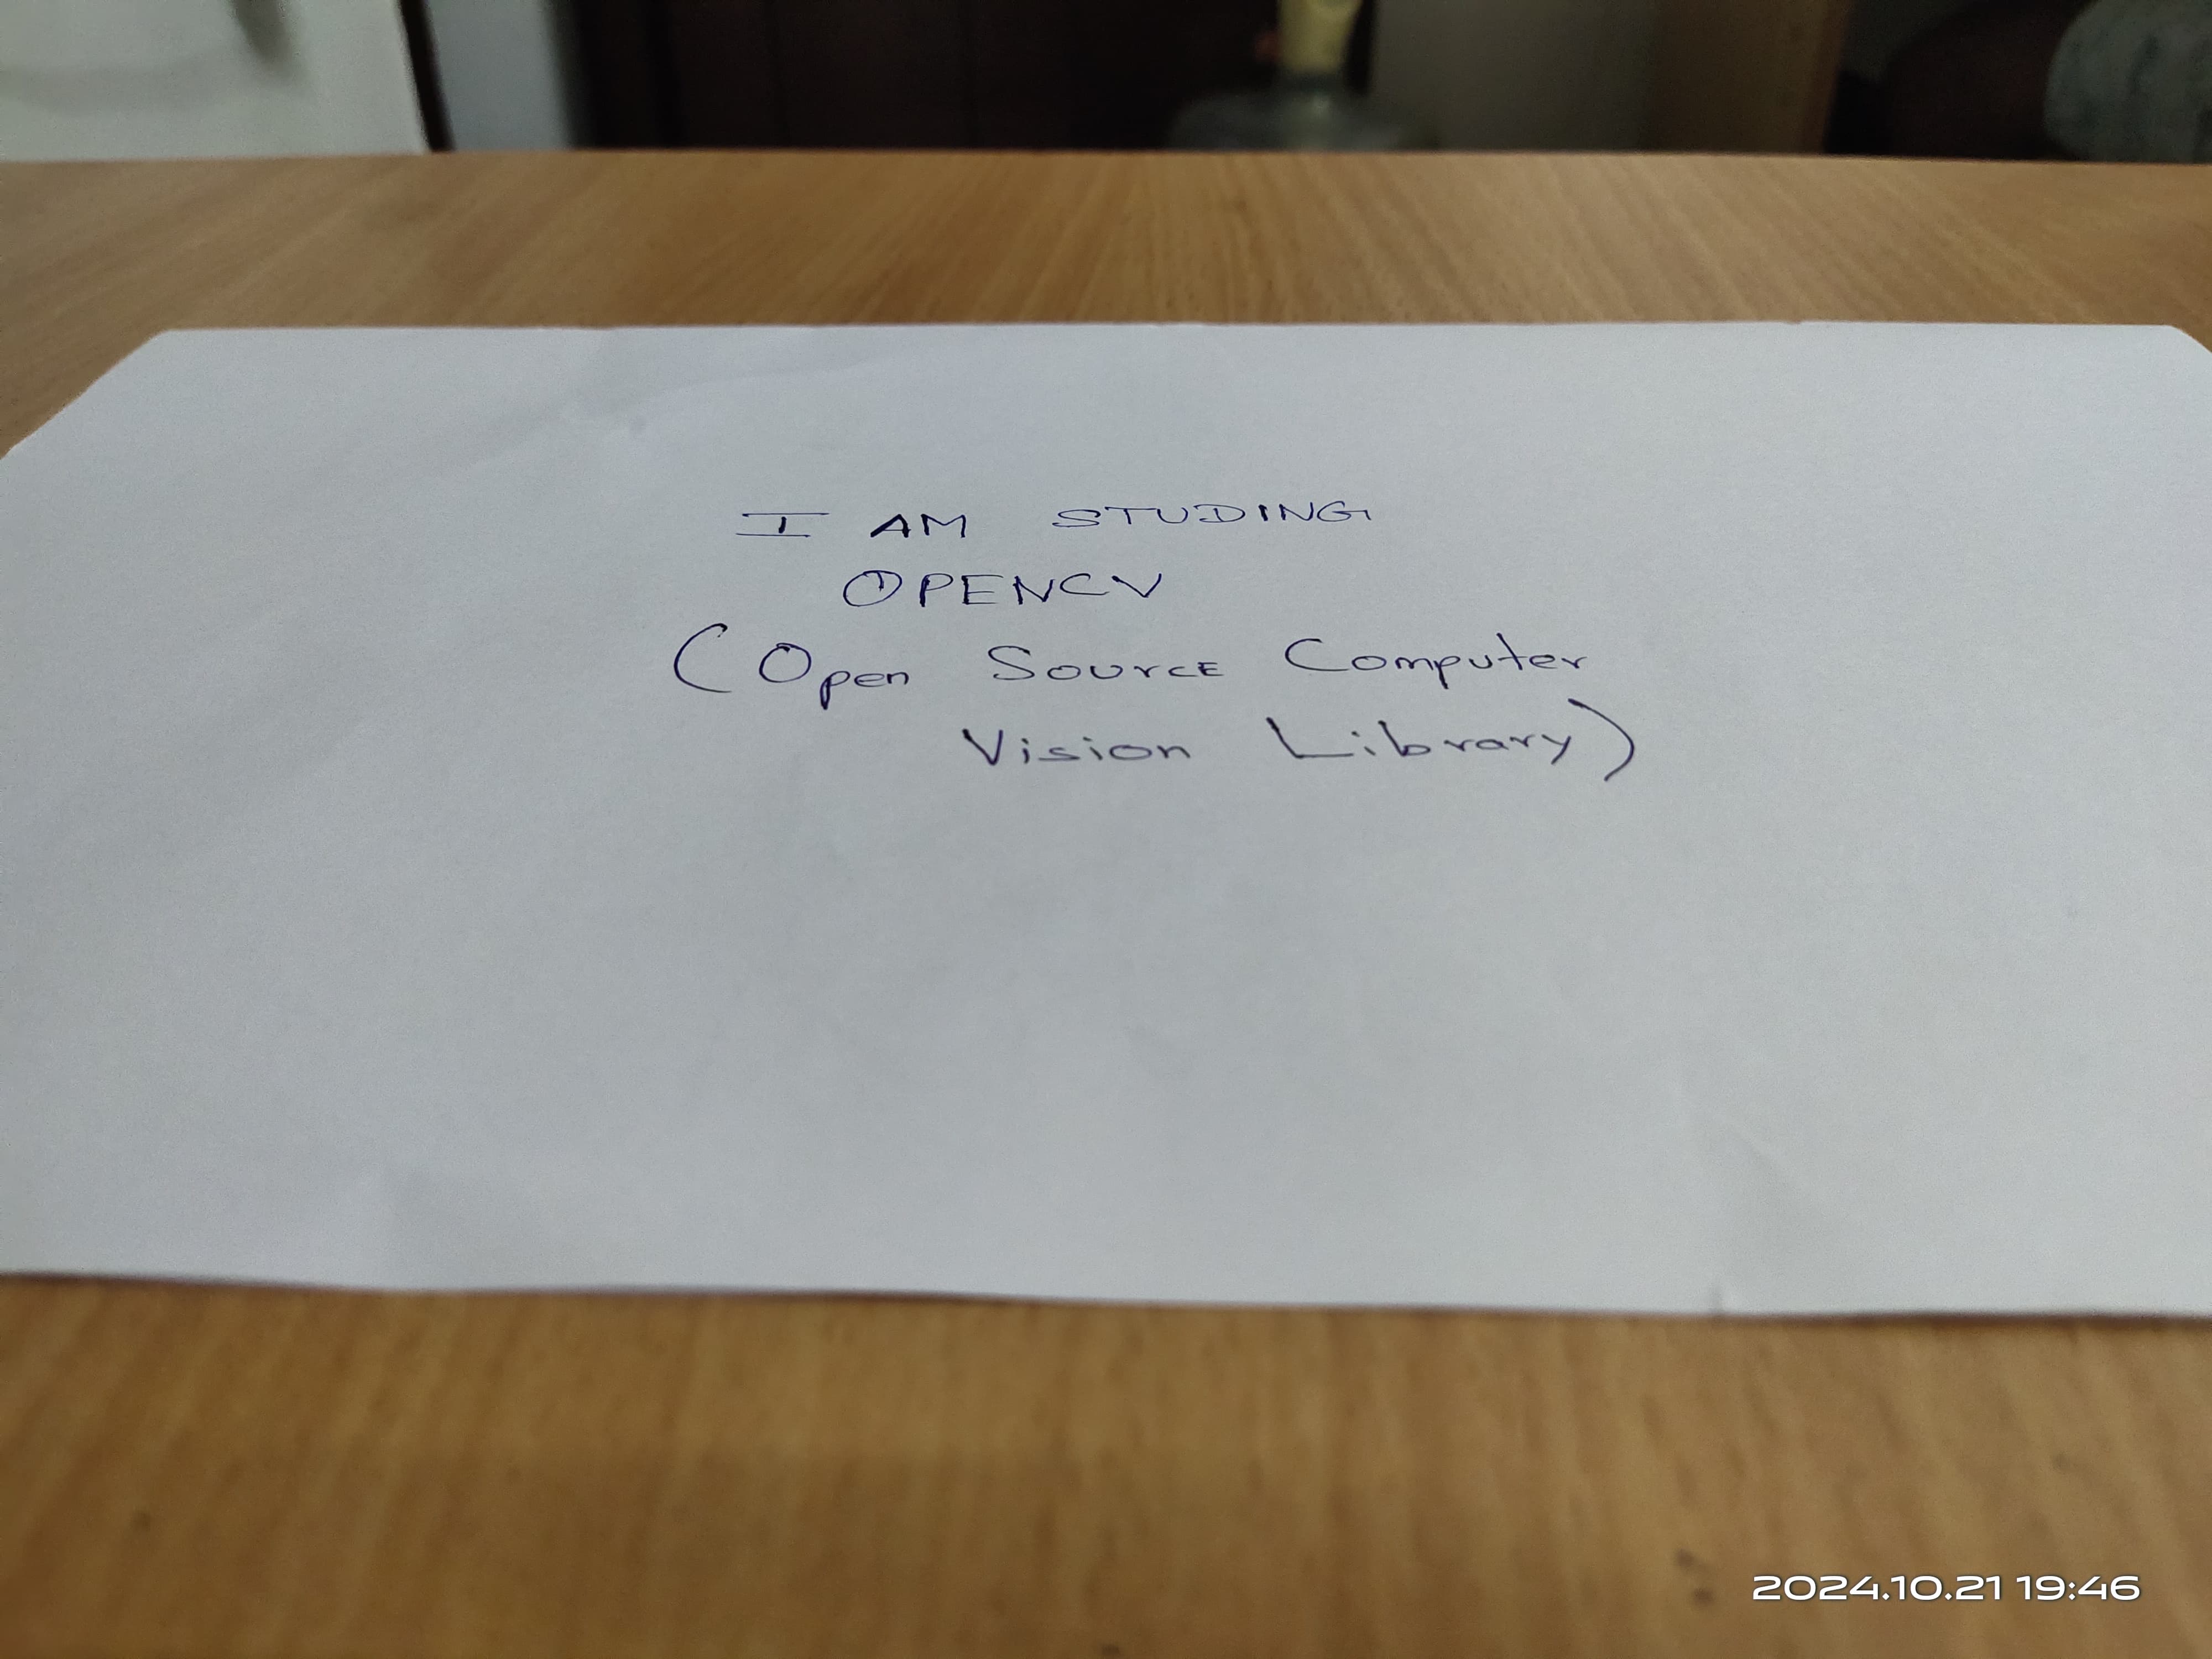 I AM STUDING
OPENCV
(Open Source Computer
Vision Library)
2024.10.21 19:46